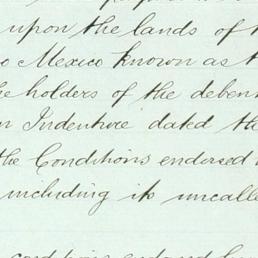 upon the lands of
o Mexico known as t
he holders of the deben
n Indenture dated the
the Conditions endorsed
including its uncalle